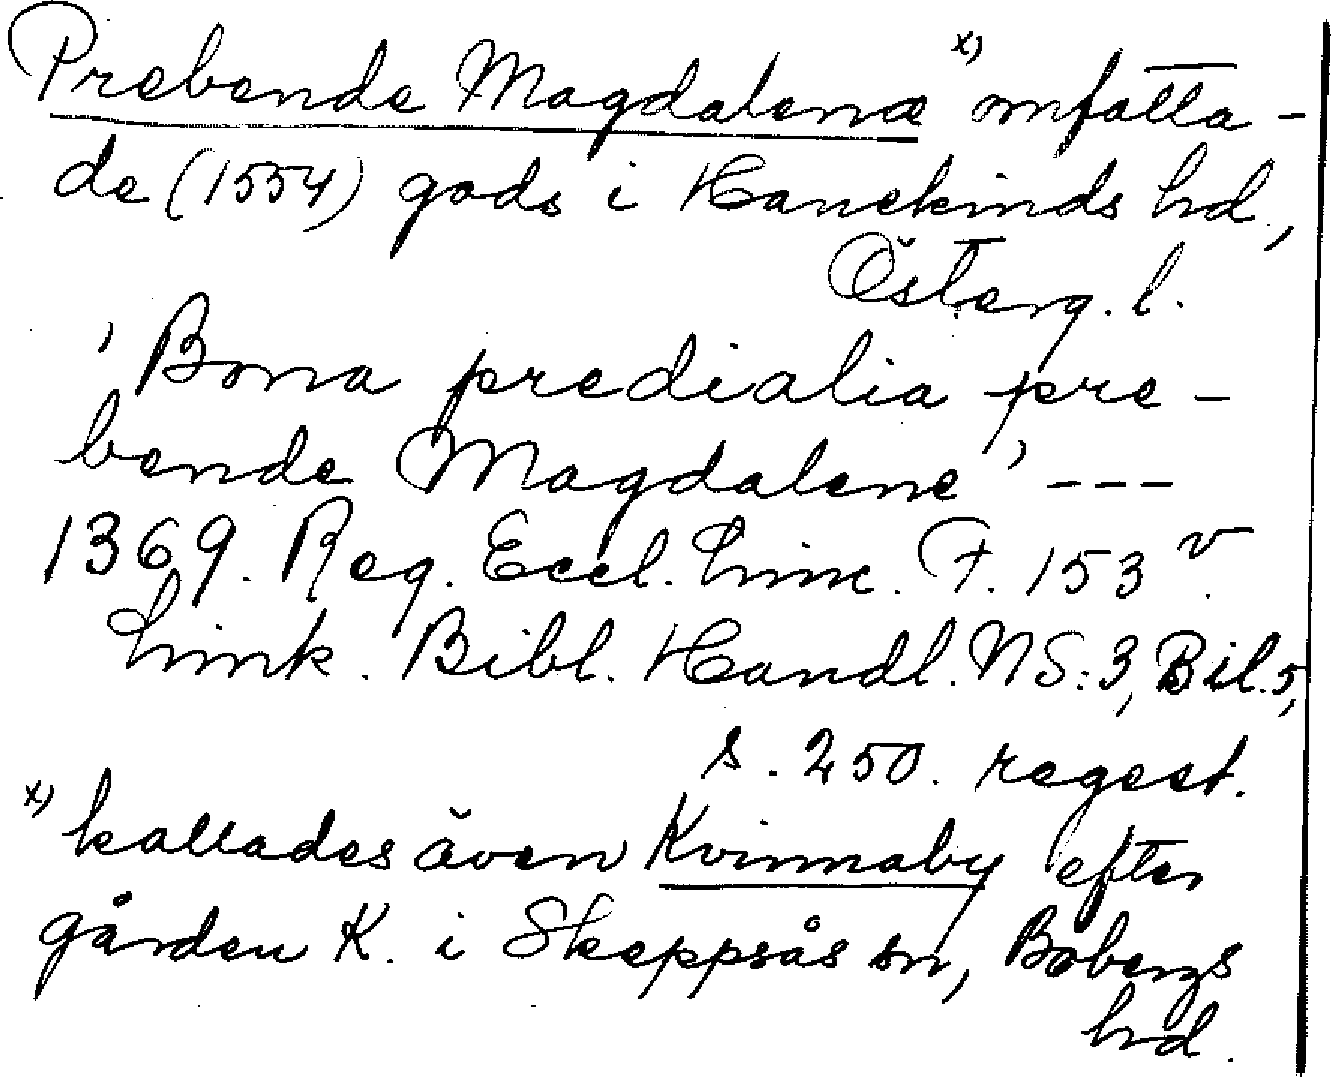 Prebende Magdalenæ x) omfatta-
de (1554) gods i Hanekinds hd.,
Österg. l.
'Bona predialia pre-
bende Magdalene' ---
1369. Reg. Eccl. Linc. F. 153 v.
Link. Bibl. Handl. NS:3, Bil.5,
s. 250. regest.
x) kallades även Kvinnaby efter
gården K. i Skeppsås sn, Bobergs
hd.